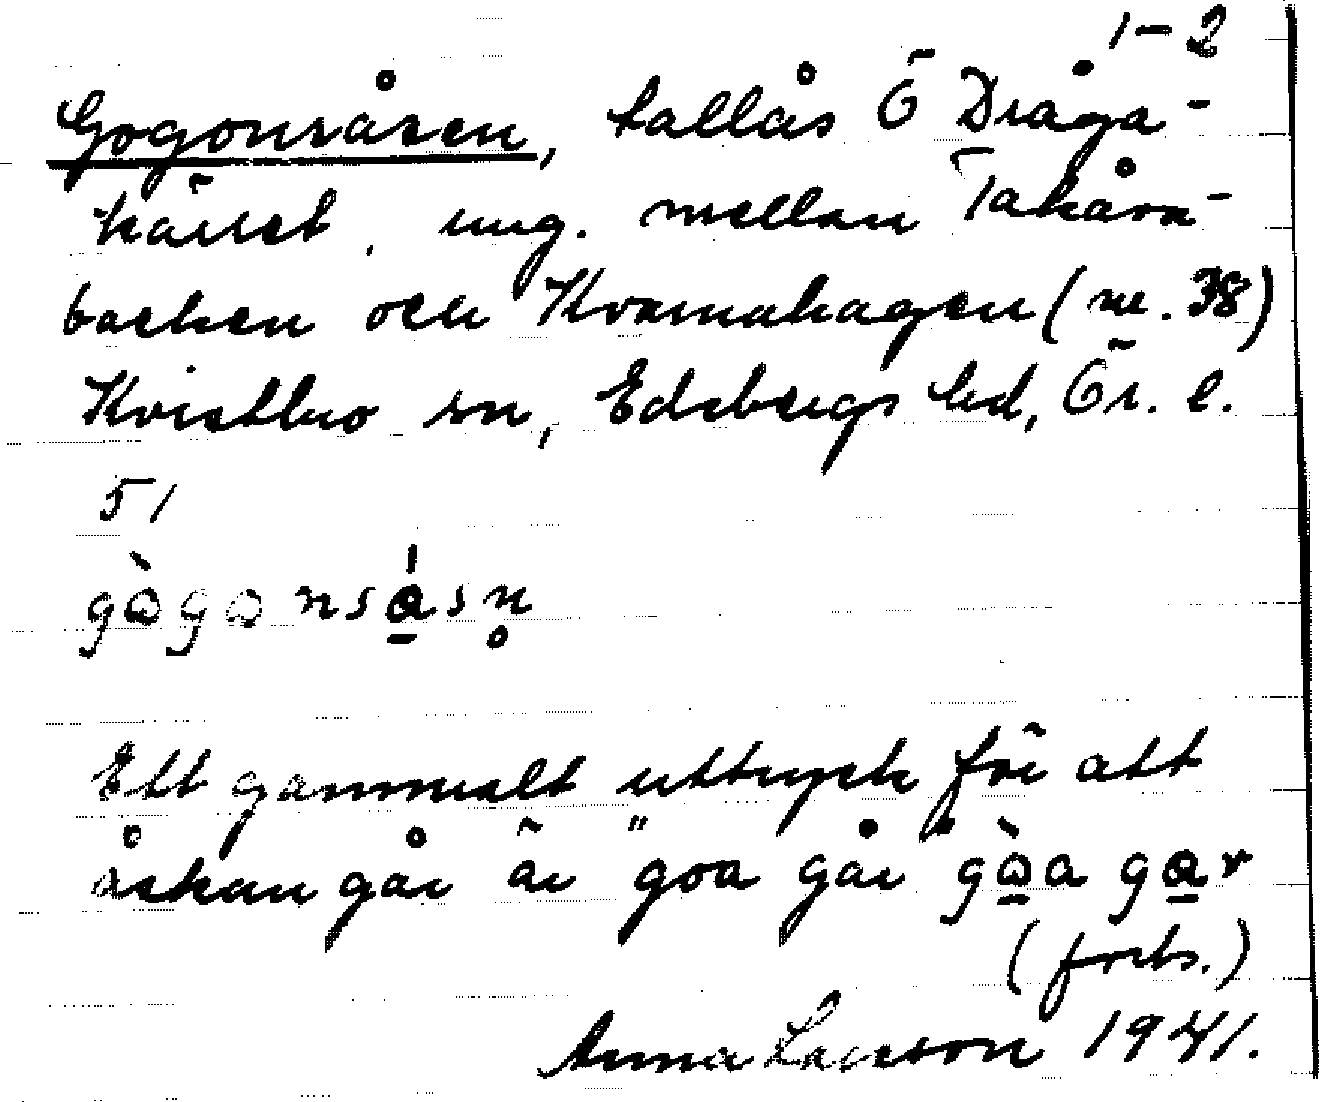 1-2
Gogonsåsen, tallås Ö Dråga-
kärret, ung. mellan Takåra-
backen och Kvarnahagen (nr. 38)
Kvistbro sn, Edsbergs hd, Ör. l.
51
gògonsåsn̥
Ett gammalt uttryck för att
åskan går är "goa går" gòa gar
(forts.)
Anna Larsson 1941.